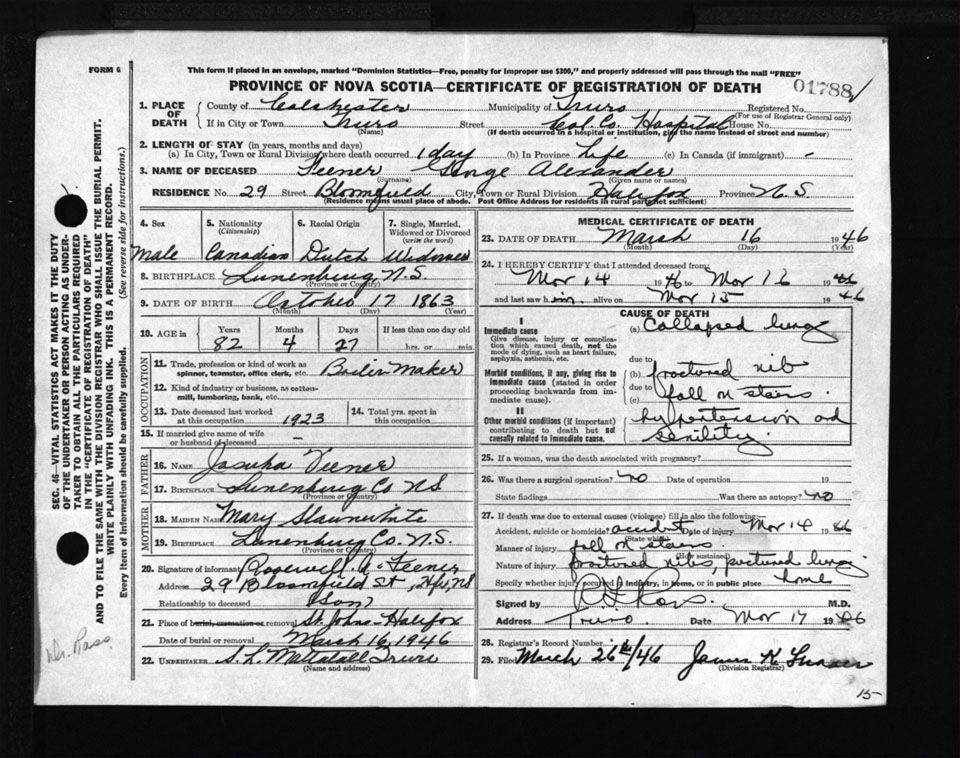 FORM 6
This form if placed in an envelope, marked "Dominion Statistics—Free, penalty for improper use $300," and properly addressed will pass through the mail "FREE"
PROVINCE OF NOVA SCOTIA—CERTIFICATE OF REGISTRATION OF DEATH
01788
1. PLACE OF DEATH
County of Colchester Municipality of Truro Registered No.
(For use of Registrar General only)
If in City or Town Truro Street Col. Co. Hospital House No.
(Name) (If death occurred in a hospital or institution, give the name instead of street and number)
2. LENGTH OF STAY (in years, months and days)
(a) In City, Town or Rural Division where death occurred 1 day (b) In Province Life (c) In Canada (if immigrant) -
3. NAME OF DECEASED Feener George Alexander
(Surname) (Given name or names)
RESIDENCE No. 29 Street Bloomfield City, Town or Rural Division Halifax Province N.S.
(Residence means usual place of abode. Post Office Address for residents in rural parts not sufficient)
4. Sex
Male
5. Nationality
(Citizenship)
Canadian
6. Racial Origin
Dutch
7. Single, Married, Widowed or Divorced
(write the word)
Widowed
8. BIRTHPLACE Lunenburg N.S.
(Province or Country)
9. DATE OF BIRTH October 17 1863
(Month) (Day) (Year)
10. AGE in Years Months Days If less than one day old
82 4 27 hrs. or min.
OCCUPATION
11. Trade, profession or kind of work as
spinner, teamster, office clerk, etc. Boiler Maker
12. Kind of industry or business, as cotton-
mill, lumbering, bank, etc.
13. Date deceased last worked
at this occupation 1923
14. Total yrs. spent in
this occupation
15. If married give name of wife
or husband of deceased -
FATHER
16. NAME Feener
17. BIRTHPLACE Lunenburg Co NS
(Province or Country)
MOTHER
18. MAIDEN NAME Mary
19. BIRTHPLACE Lunenburg Co. N.S.
(Province or Country)
20. Signature of informant Feener
Address 29 Bloomfield St, Hfx, NS
Relationship to deceased (Son)
21. Place of burial, cremation or removal St. Johns - Halifax
Date of burial or removal March 16, 1946
22. UNDERTAKER S. L. Truro
(Name and address)
MEDICAL CERTIFICATE OF DEATH
23. DATE OF DEATH March 16 1946
(Month) (Day) (Year)
24. I HEREBY CERTIFY that I attended deceased from:
Mar 14 1946 to Mar 16 1946
and last saw him alive on Mar 15 1946
CAUSE OF DEATH
I
Immediate cause (a) Collapsed lung
Give disease, injury or complica-
tion which caused death, not the
mode of dying, such as heart failure,
asphyxia, asthenia, etc.
due to
Morbid conditions, if any, giving rise to
immediate cause (stated in order
proceeding backwards from im-
mediate cause).
(b) fractured rib
due to
(c) fall on stairs
II
Other morbid conditions (if important)
contributing to death but not
causally related to immediate cause.
hypertension and
senility.
25. If a woman, was the death associated with pregnancy?
26. Was there a surgical operation? no Date of operation 19
State findings Was there an autopsy? no
27. If death was due to external causes (violence) fill in also the following:—
Accident, suicide or homicide? accident Date of injury Mar 14 1946
(State which)
Manner of injury fall on stairs
(How sustained)
Nature of injury fractured ribs, punctured lung
Specify whether injury occurred in industry, in home, or in public place home
Signed by Ross. M.D.
Address Truro. Date Mar 17 1946
28. Registrar's Record Number
29. Filed March 26th/46 James K. Fraser
(Division Registrar)
15-
SEC. 46—VITAL STATISTICS ACT MAKES IT THE DUTY
OF THE UNDERTAKER OR PERSON ACTING AS UNDER-
TAKER TO OBTAIN ALL THE PARTICULARS REQUIRED
IN THE "CERTIFICATE OF REGISTRATION OF DEATH"
AND TO FILE THE SAME WITH THE DIVISION REGISTRAR WHO SHALL ISSUE THE BURIAL PERMIT.
WRITE PLAINLY WITH UNFADING INK. THIS IS A PERMANENT RECORD.
Every item of Information should be carefully supplied. (See reverse side for instructions.)
Dr. Ross